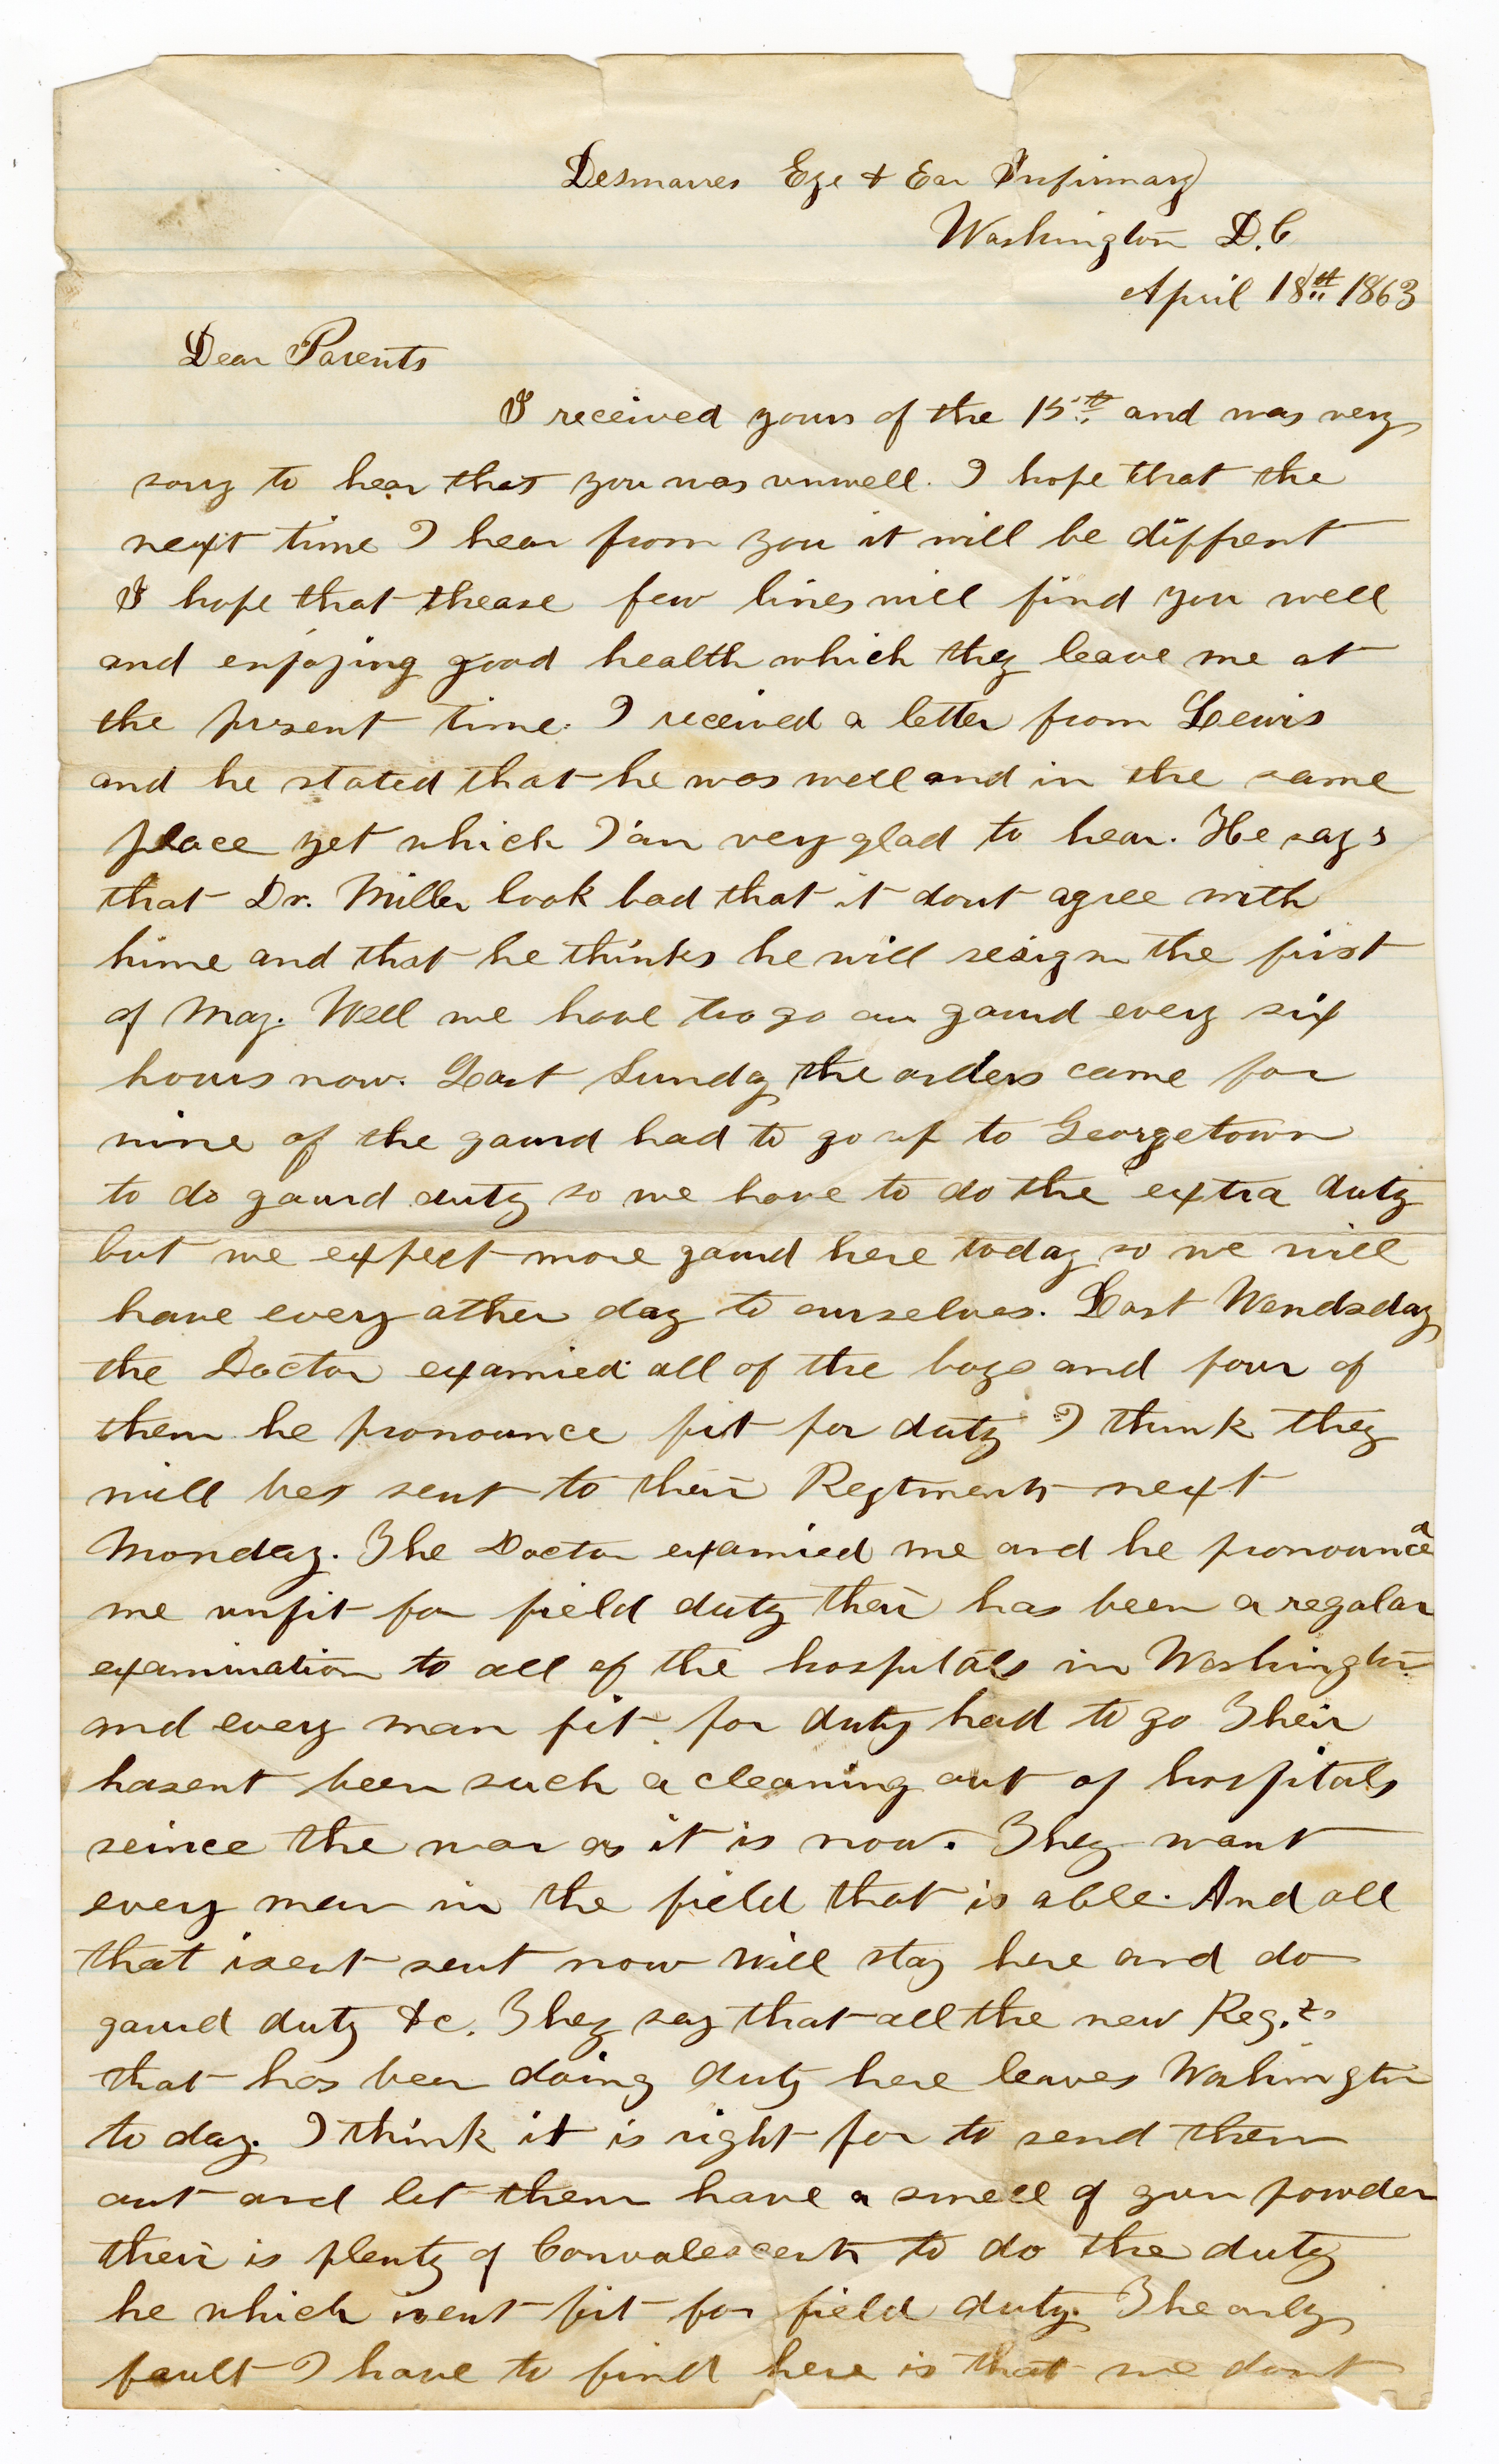 Desmarres Eye & Ear Infirmary
Washington D.C
April 18th 1863
Dear Parents
I received yours of the 15th and was very
sory to hear that you was unwell. I hope that the
next time I hear from you it will be diffrent
I hope that thease few lines will find you well
and enjoying good health which they leave me at
the present time. I received a letter from Lewis
and he stated that he was well and in the same
place yet which I'am very glad to hear. He says
that Dr. Miller look bad that it dont agree with
hime and that he thinks he will resign the first
of May. Well we have to go on gaurd every six
hours now. Last Sunday the orders came for
nine of the gaurd had to go up to Georgetown
to do gaurd duty so we have to do the extra duty
but we expect more gaurd here today so we will
have every other day to ourselves. Last Wendsday
the Doctor examied all of the boys and four of
them he pronounce fit for duty I think they
will bee sent to their Regtments next
Monday. The Doctor examied me and he pronounced
me unfit for field duty their has been a regalar
examination to all of the hospitals in Washington
and every man fit for duty had to go Their
hasent been such a cleaning out of hospitals
seince the war as it is now. They want
every man in the field that is able. And all
that isent sent now will stay here and do
gaurd duty &c. They say that all the new Reg.ts
that has been doing duty here leaves Washington
to day. I think it is right for to send them
out and let them have a smell of gun powder
their is plenty of Convalescents to do the duty
he which isent fit for field duty. The only
fault I have to find here is that we dont